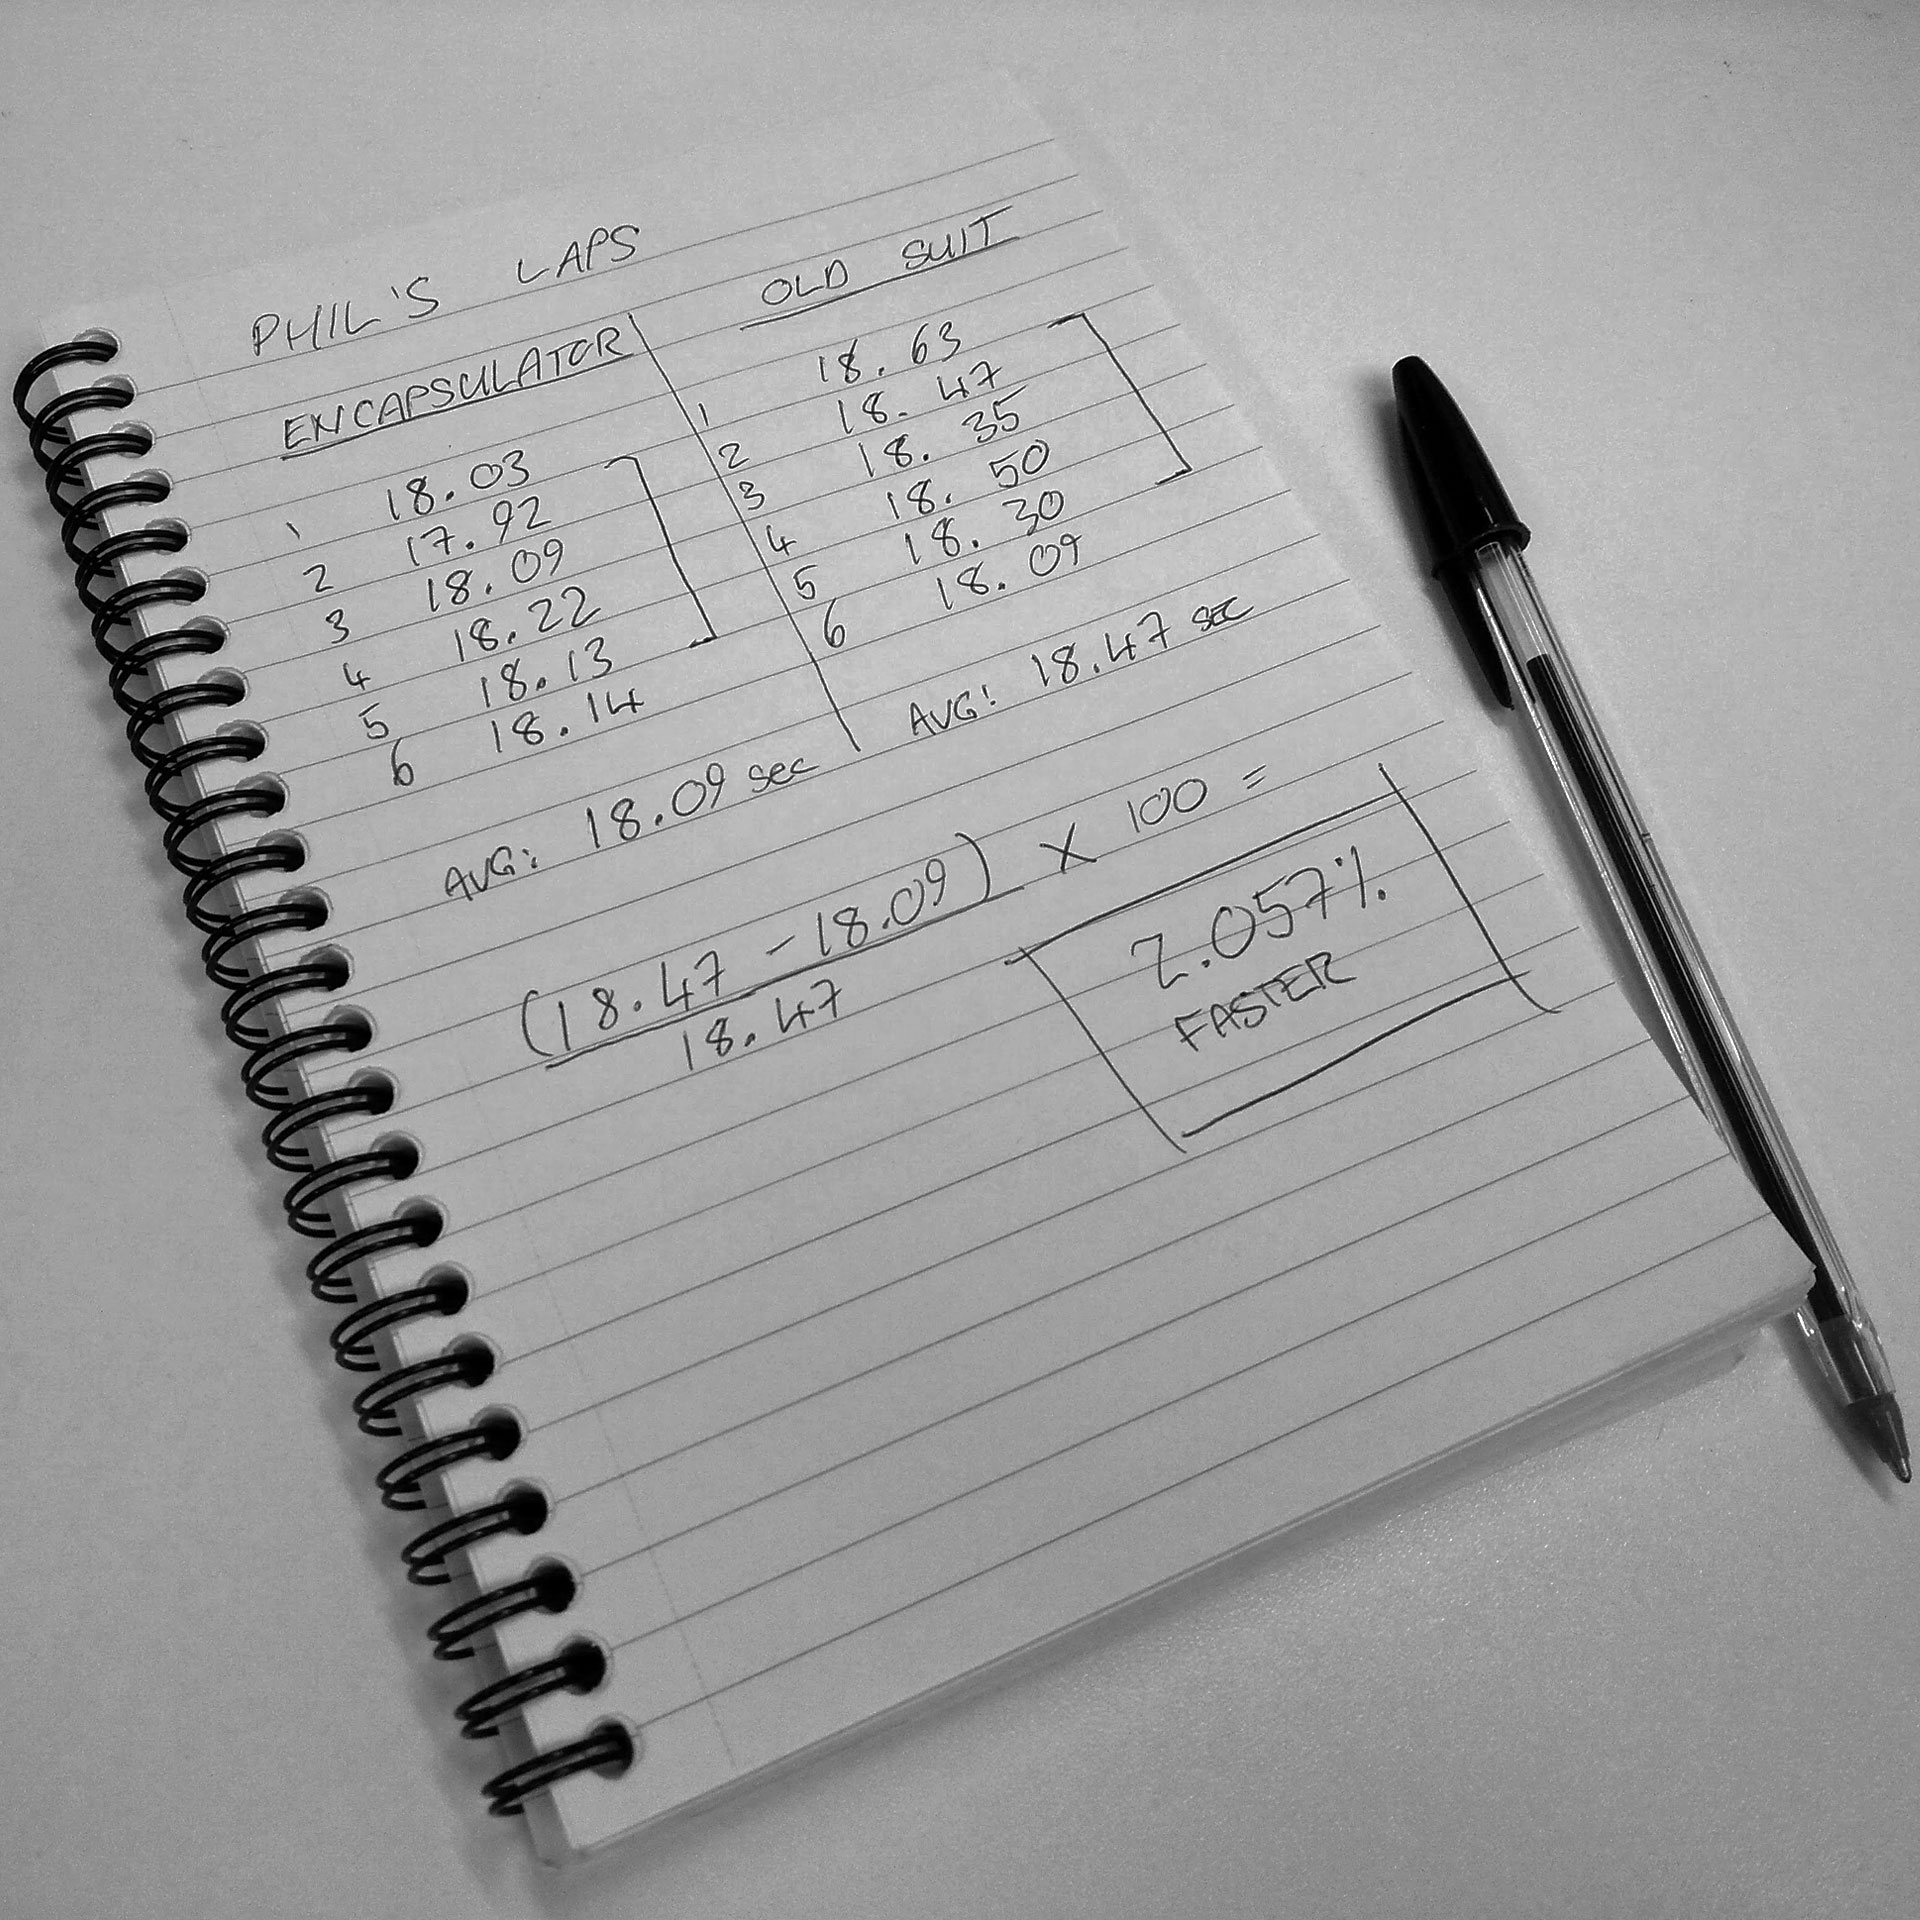 PHIL'S LAPS
ENCAPSULATOR
1 18.03
2 17.92
3 18.09
4 18.22
5 18.13
6 18.14
AVG: 18.09 sec
OLD SUIT
1 18.63
2 18.47
3 18.35
4 18.50
5 18.30
6 18.09
AVG: 18.47 SEC
(18.47 - 18.09) X 100 =
18.47
2.057%
FASTER